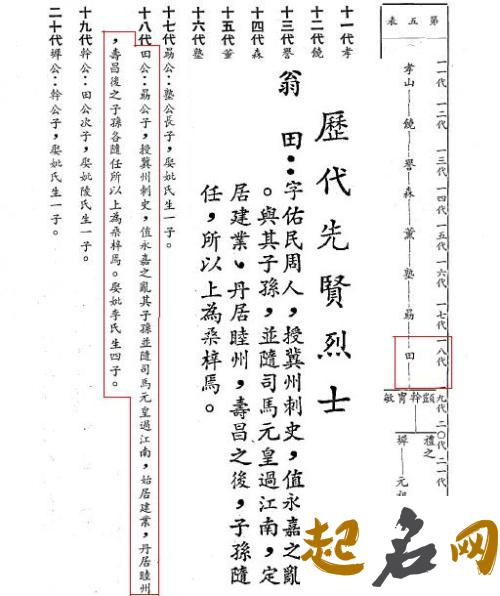 第五表
一一代 一二代 一三代 一四代 一五代 一六代 一七代 一八代 一九代 二〇代 二一代
孝山—饒—譽—森—薰—塾—易—田
幹
敏
禮之
樨—元
歷代先賢烈士
翁田：字佑民周人，授冀州刺史，值永嘉之亂
。與其子孫，並隨司馬元皇過江南，定
居建業、丹居睦州，壽昌之後，子孫隨
任，所以上為桑梓焉。
十一代孝
十二代饒
十三代譽
十四代森
十五代薰
十六代塾
十七代易公：塾公長子，娶妣氏生一子。
十八代田公：易公子，授冀州刺史，值永嘉之亂其子孫並隨司馬元皇過江南，始居建業，丹居睦州
，壽昌後之子孫各隨任所以上為桑梓焉。娶妣李氏生四子。
十九代幹公：田公次子，娶妣陵氏生一子。
二十代樨公：幹公子，娶妣氏生一子。
起名网